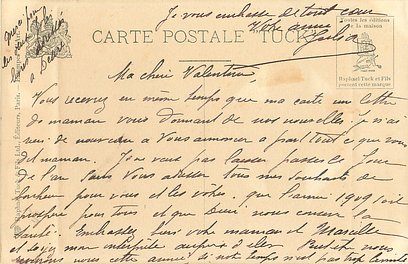 Je vous embrasse de tout cœur
Votre amie
CARTE POSTALE "TUCK"
Toutes les éditions
de la maison
Raphael Tuck et Fils
portent cette marque
Ma chère Valentine
Vous recevrez en même temps que ma carte une lettre
de maman vous donnant de nos nouvelles je n'ai
rien de nouveau à vous annoncer à part tout ce que vous
dit maman. Je ne veux pas laisser passer le Jour
de l'an sans vous adresser tous mes souhaits de
bonheur pour vous et les vôtres. que l'année 1909 soit
prospère pour tous et que Dieu nous conserve la
santé. Embrassez bien votre maman et Marcelle
et soyez mon interprète auprès d'elles
nous cette année si notre temps n'est pas trop